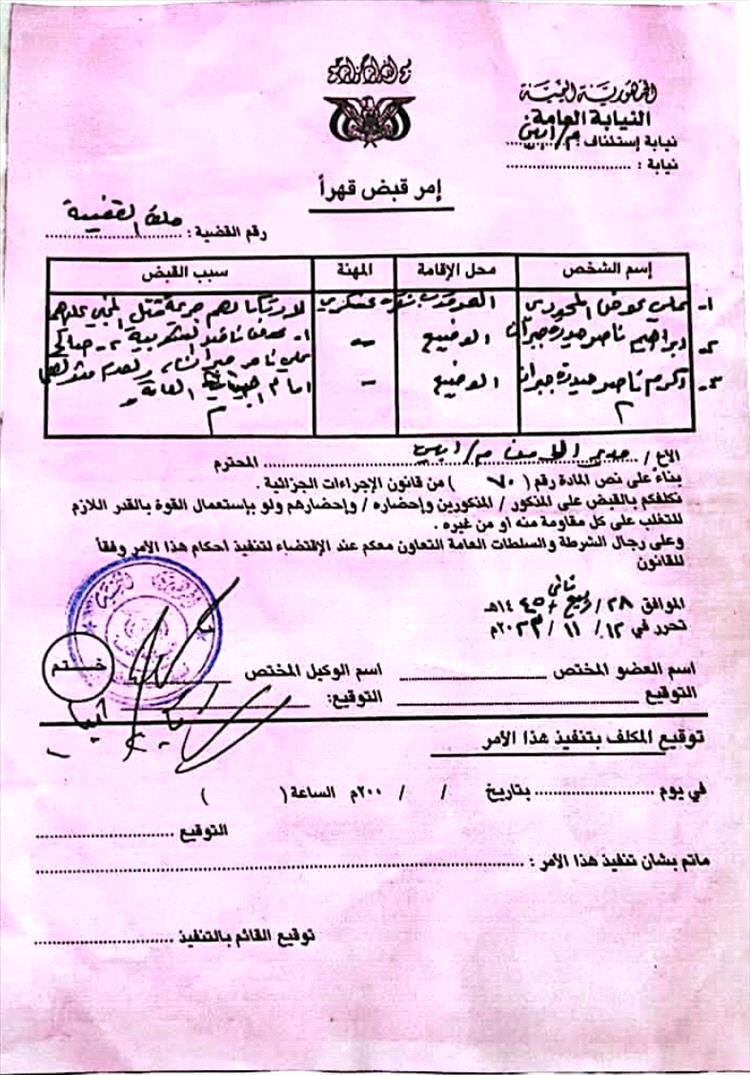 بسم الله الرحمن الرحيم
الجمهورية اليمنية
النيابة العامة
نيابة إستئناف م/ابين
نيابة :
إمر قبض قهراً
رقم القضية :
إسم الشخص
محل الإقامة
المهنة
سبب القبض
١- علي عوض
عسكري
لارتكابهم جريمة قتل المجني عليهم
٢- ابراهيم ناصر حيدرة جبران
الوضيع
-
١-
٢- صالح
علي ناصر
ولعدم مثولهم
٣- اكرم ناصر حيدرة جبران
الوضيع
-
امام النيابة العامة
الأخ / مدير
م/ابين المحترم
بناءً على نص المادة رقم ( ٧٠ ) من قانون الإجراءات الجزائية .
نكلفكم بالقبض على المذكور / المذكورين وإحضاره / وإحضارهم ولو بإستعمال القوة بالقدر اللازم
للتغلب على كل مقاومة منه او من غيره .
وعلى رجال الشرطة والسلطات العامة التعاون معكم عند الإقتضاء لتنفيذ أحكام هذا الأمر وفقاً
للقانون
الموافق ٢٨/ ربيع ثاني / ١٤٤٥هـ
تحرر في ١٢/ ١١ / ٢٠٢٣م
اسم العضو المختص
اسم الوكيل المختص
ختم
التوقيع
التوقيع:
توقيع المكلف بتنفيذ هذا الأمر
في يوم بتاريخ / / ٢٠٠م الساعة ( )
التوقيع
ماتم بشان تنفيذ هذا الأمر :
توقيع القائم بالتنفيذ